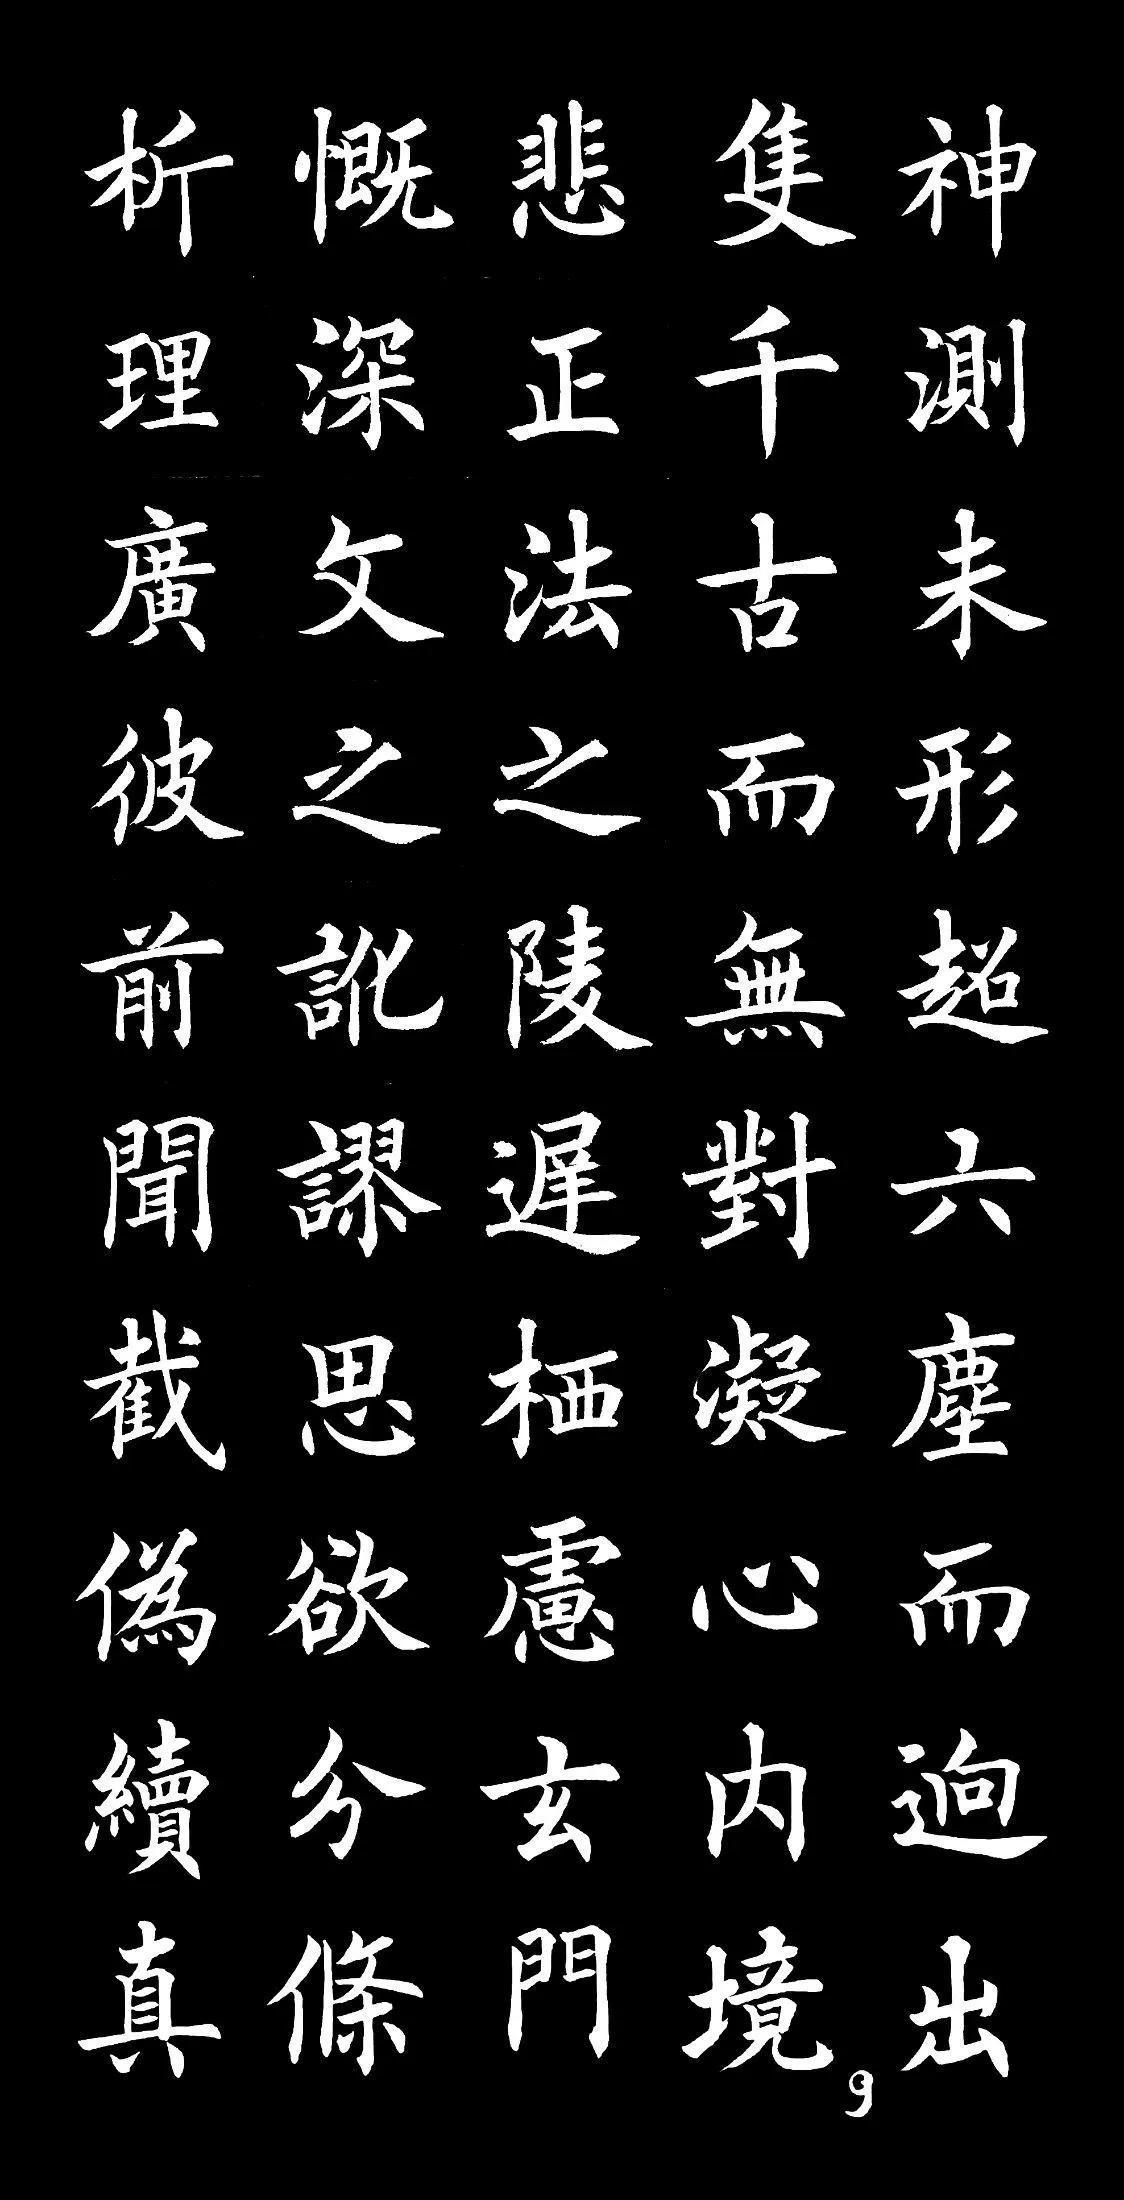 神測未形超六塵而逈出
隻千古而無對凝心内境
悲正法之陵遲栖慮玄門
慨深文之訛謬思欲分條
析理廣彼前聞截偽續真
9